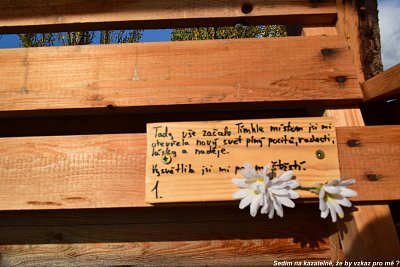 Tady vše začalo. Tímhle místem jsi mi
otevřela nový svět plný pocitů, radosti,
lásky a naděje.
Vysvětlila jsi mi štěstí.
1.
Sedím na kazatelně, že by vzkaz pro mě ?